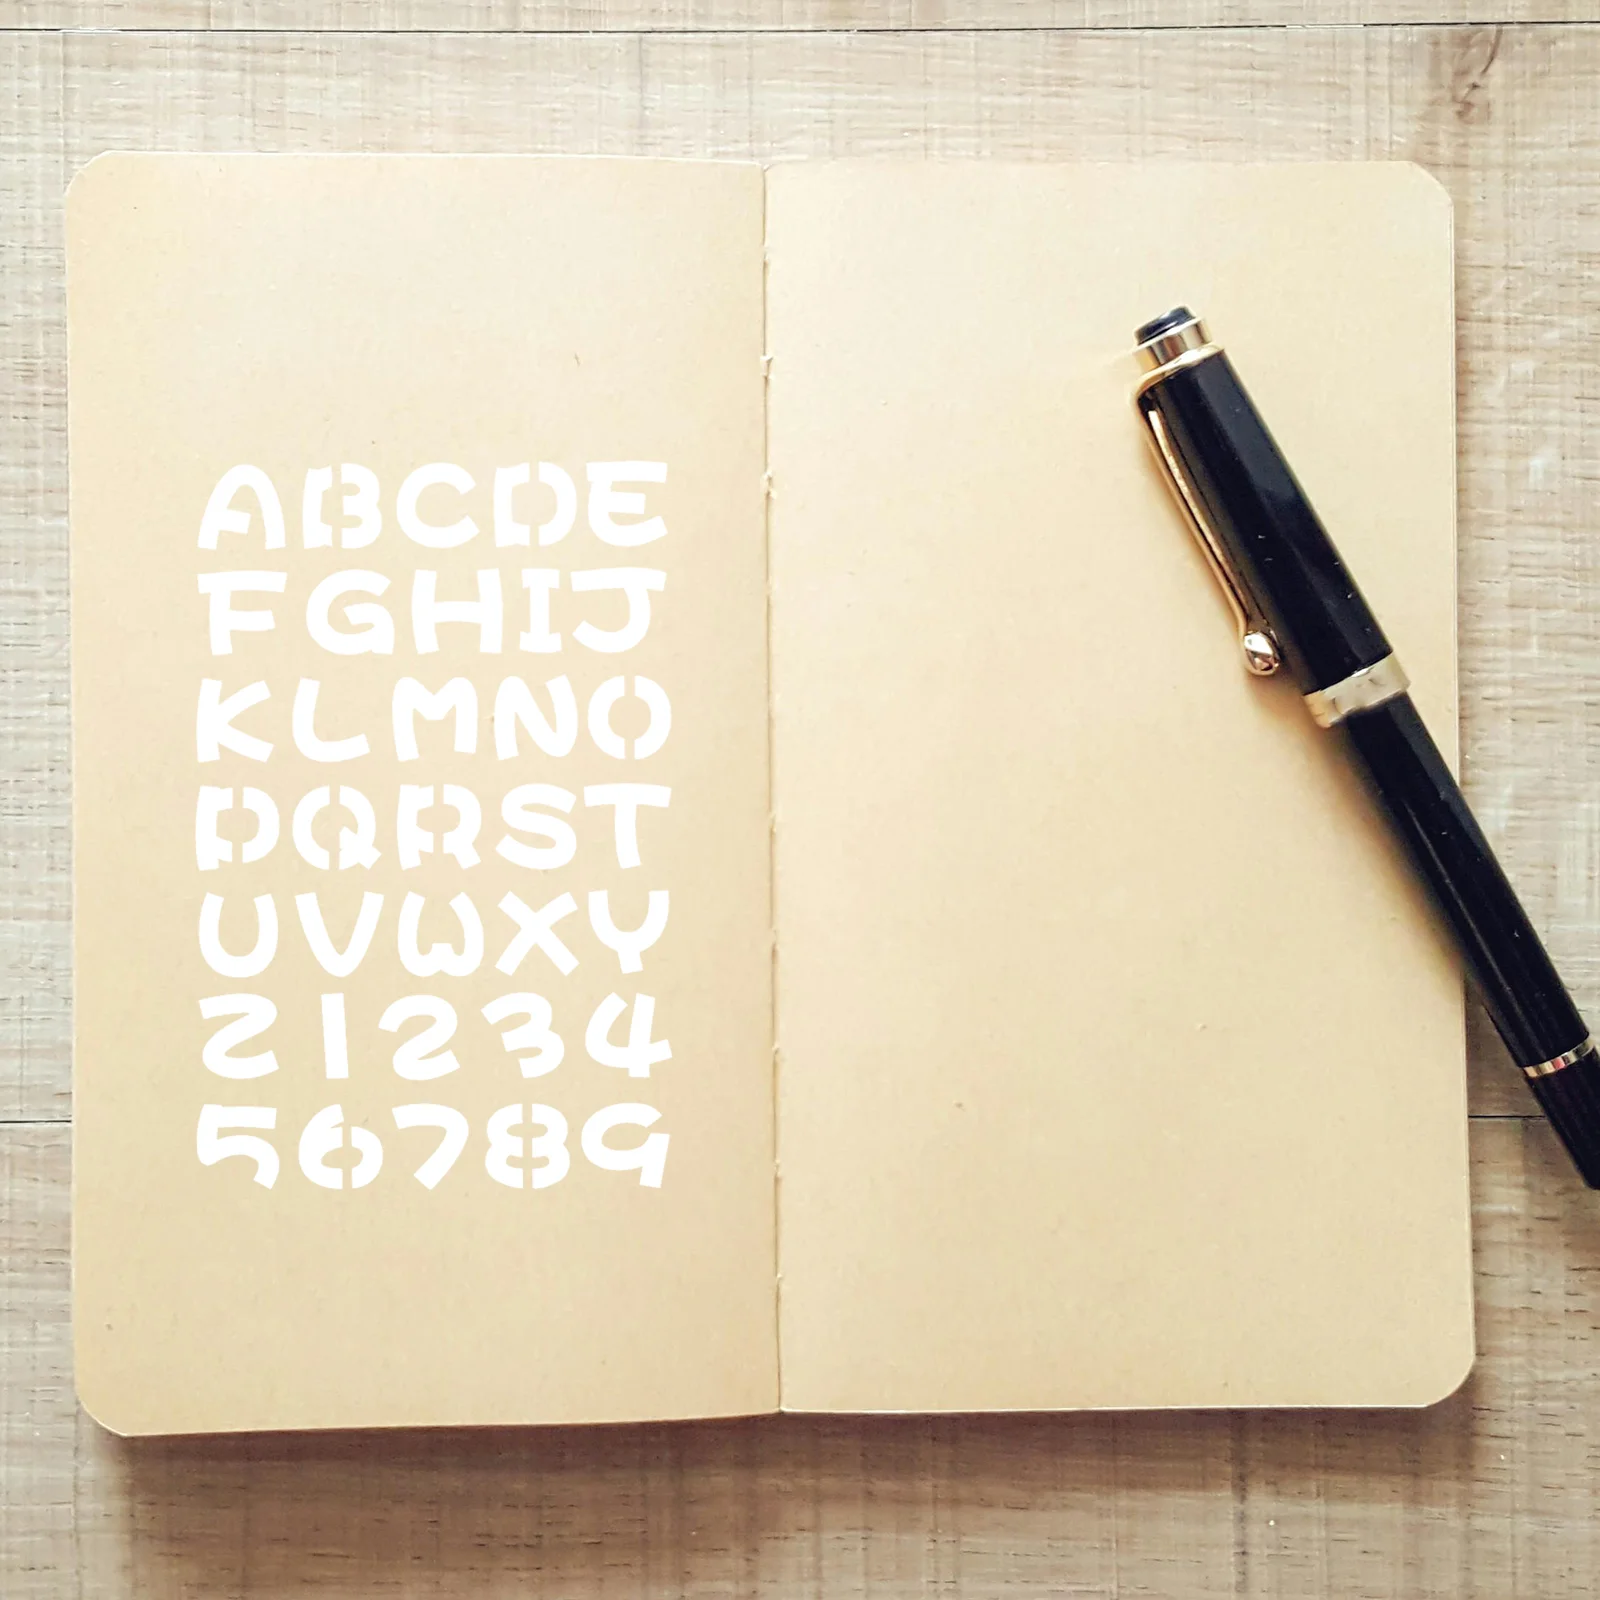 ABCDE
FGHIJ
KLMNO
PQRST
UVWXY
Z1234
56789